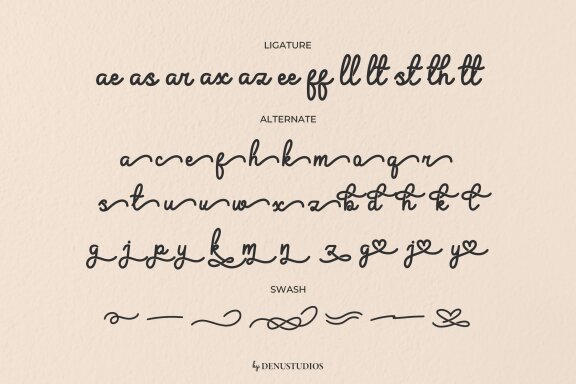 LIGATURE
ae as ar ax az ee ff ll lt st th tt
ALTERNATE
a c e f h k m o q r
s t u u w x z b d h k t
g j p y k m n z g j y
SWASH
by DENUSTUDIOS